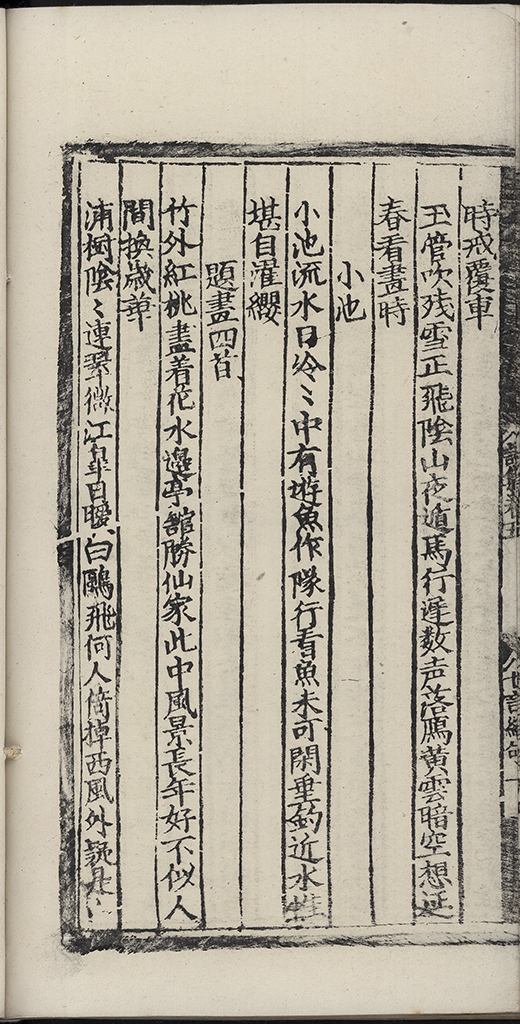 時戒覆車
玉管吹残雪正飛陰山夜遁馬行遲数声落鴈黄雲暗空想延
春看畫時
小池
小池流水日冷〻中有遊魚作隊行看魚未可閑垂釣近水惟
堪自濯纓
題畫四首
竹外紅桃盡着花水邊亭舘勝仙家此中風景長年好不似人
間換歳華
浦樹陰〻連翠微江皐日曖白鷗飛何人倚棹西風外疑是